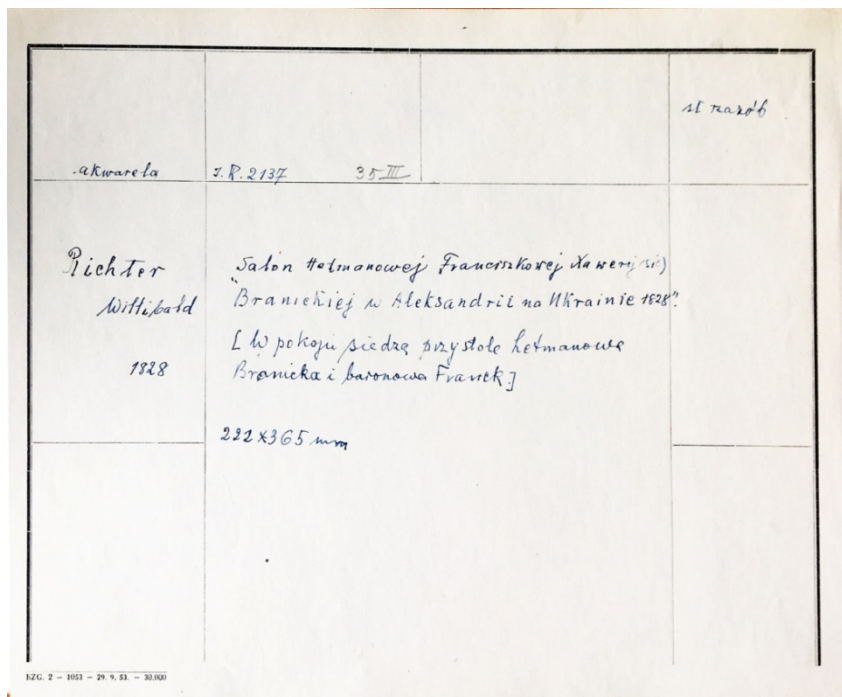 st zasób
akwarela J.R. 2137 35 III
Richter
Willibald
1828
"Salon Hetmanowej Franciszkowej Xawerej (sic)
Branickiej w Aleksandrii na Ukrainie 1828".
[W pokoju siedzą przy stole hetmanowa
Branicka i baronowa Franck.]
222 x 365 mm
BZG. 2 — 1053 — 29. 9. 53. — 30.000